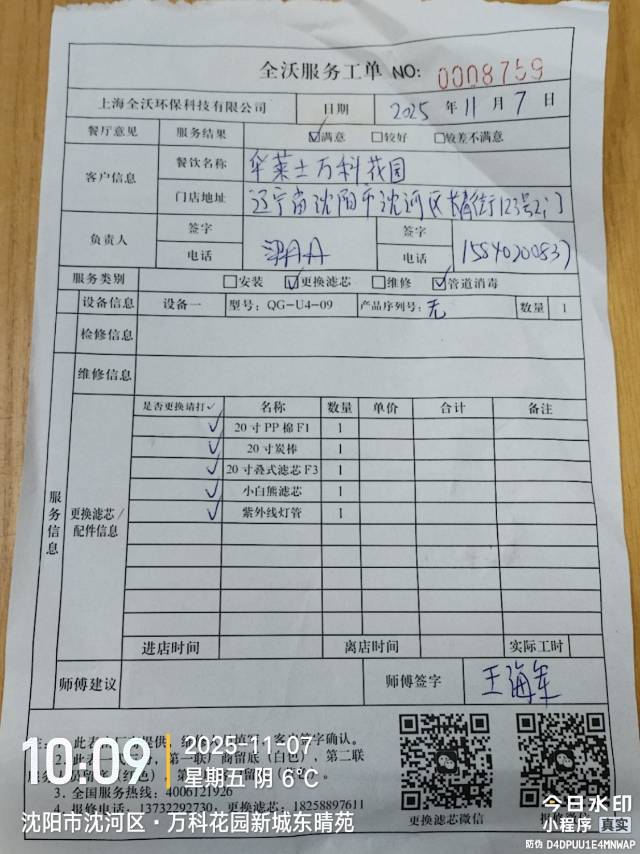 全沃服务工单 NO: 0008759
上海全沃环保科技有限公司 日期 2025 年 11 月 7 日
餐厅意见 服务结果 ☑满意 □较好 □较差不满意
客户信息 餐饮名称 华莱士万科花园
门店地址 辽宁省沈阳市沈河区长青街123号2门
负责人 签字 签字
电话 电话 15840200837
服务类别 □安装 ☑更换滤芯 □维修 ☑管道消毒
设备信息 设备一 型号: QG-U4-09 产品序列号: 无 数量 1
检修信息
维修信息
服务信息
更换滤芯/配件信息
是否更换请打✓ 名称 数量 单价 合计 备注
✓ 20寸PP棉F1 1
✓ 20寸炭棒 1
✓ 20寸叠式滤芯F3 1
✓ 小白熊滤芯 1
✓ 紫外线灯管 1
进店时间 离店时间 实际工时
师傅建议 师傅签字 王海军
3. 全国服务热线: 4006121926
4. 报修电话: 13732292730, 更换滤芯: 18258897611
更换滤芯微信
10:09 2025-11-07
星期五 阴 6℃
沈阳市沈河区·万科花园新城东晴苑
今日水印
小程序 真实
防伪 D4DPUU1E4MNWAP